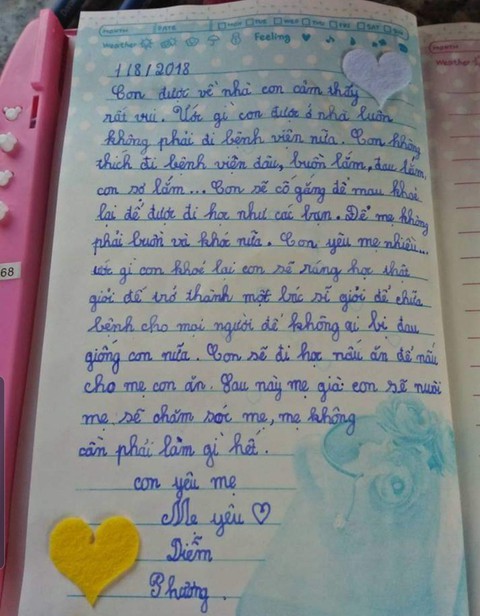 MONTH DATE MON TUE WED THU FRI SAT SUN
Weather Feeling
1/8/2018
Con được về nhà con cảm thấy
rất vui. Ước gì con được ở nhà luôn
không phải đi bệnh viện nữa. Con không
thích đi bệnh viện đâu, buồn lắm, đau lắm,
con sợ lắm... Con sẽ cố gắng để mau khoẻ
lại để được đi học như các bạn. Để mẹ không
phải buồn và khóc nữa. Con yêu mẹ nhiều...
ước gì con khoẻ lại con sẽ ráng học thật
giỏi để trở thành một bác sĩ giỏi để chữa
bệnh cho mọi người để không ai bị đau
giống con nữa. Con sẽ đi học nấu ăn để nấu
cho mẹ con ăn. Sau này mẹ già con sẽ nuôi
mẹ sẽ chăm sóc mẹ, mẹ không
cần phải làm gì hết.
con yêu mẹ
Mẹ yêu ♡
Diễm
Phương.
68
MONTH
Weather